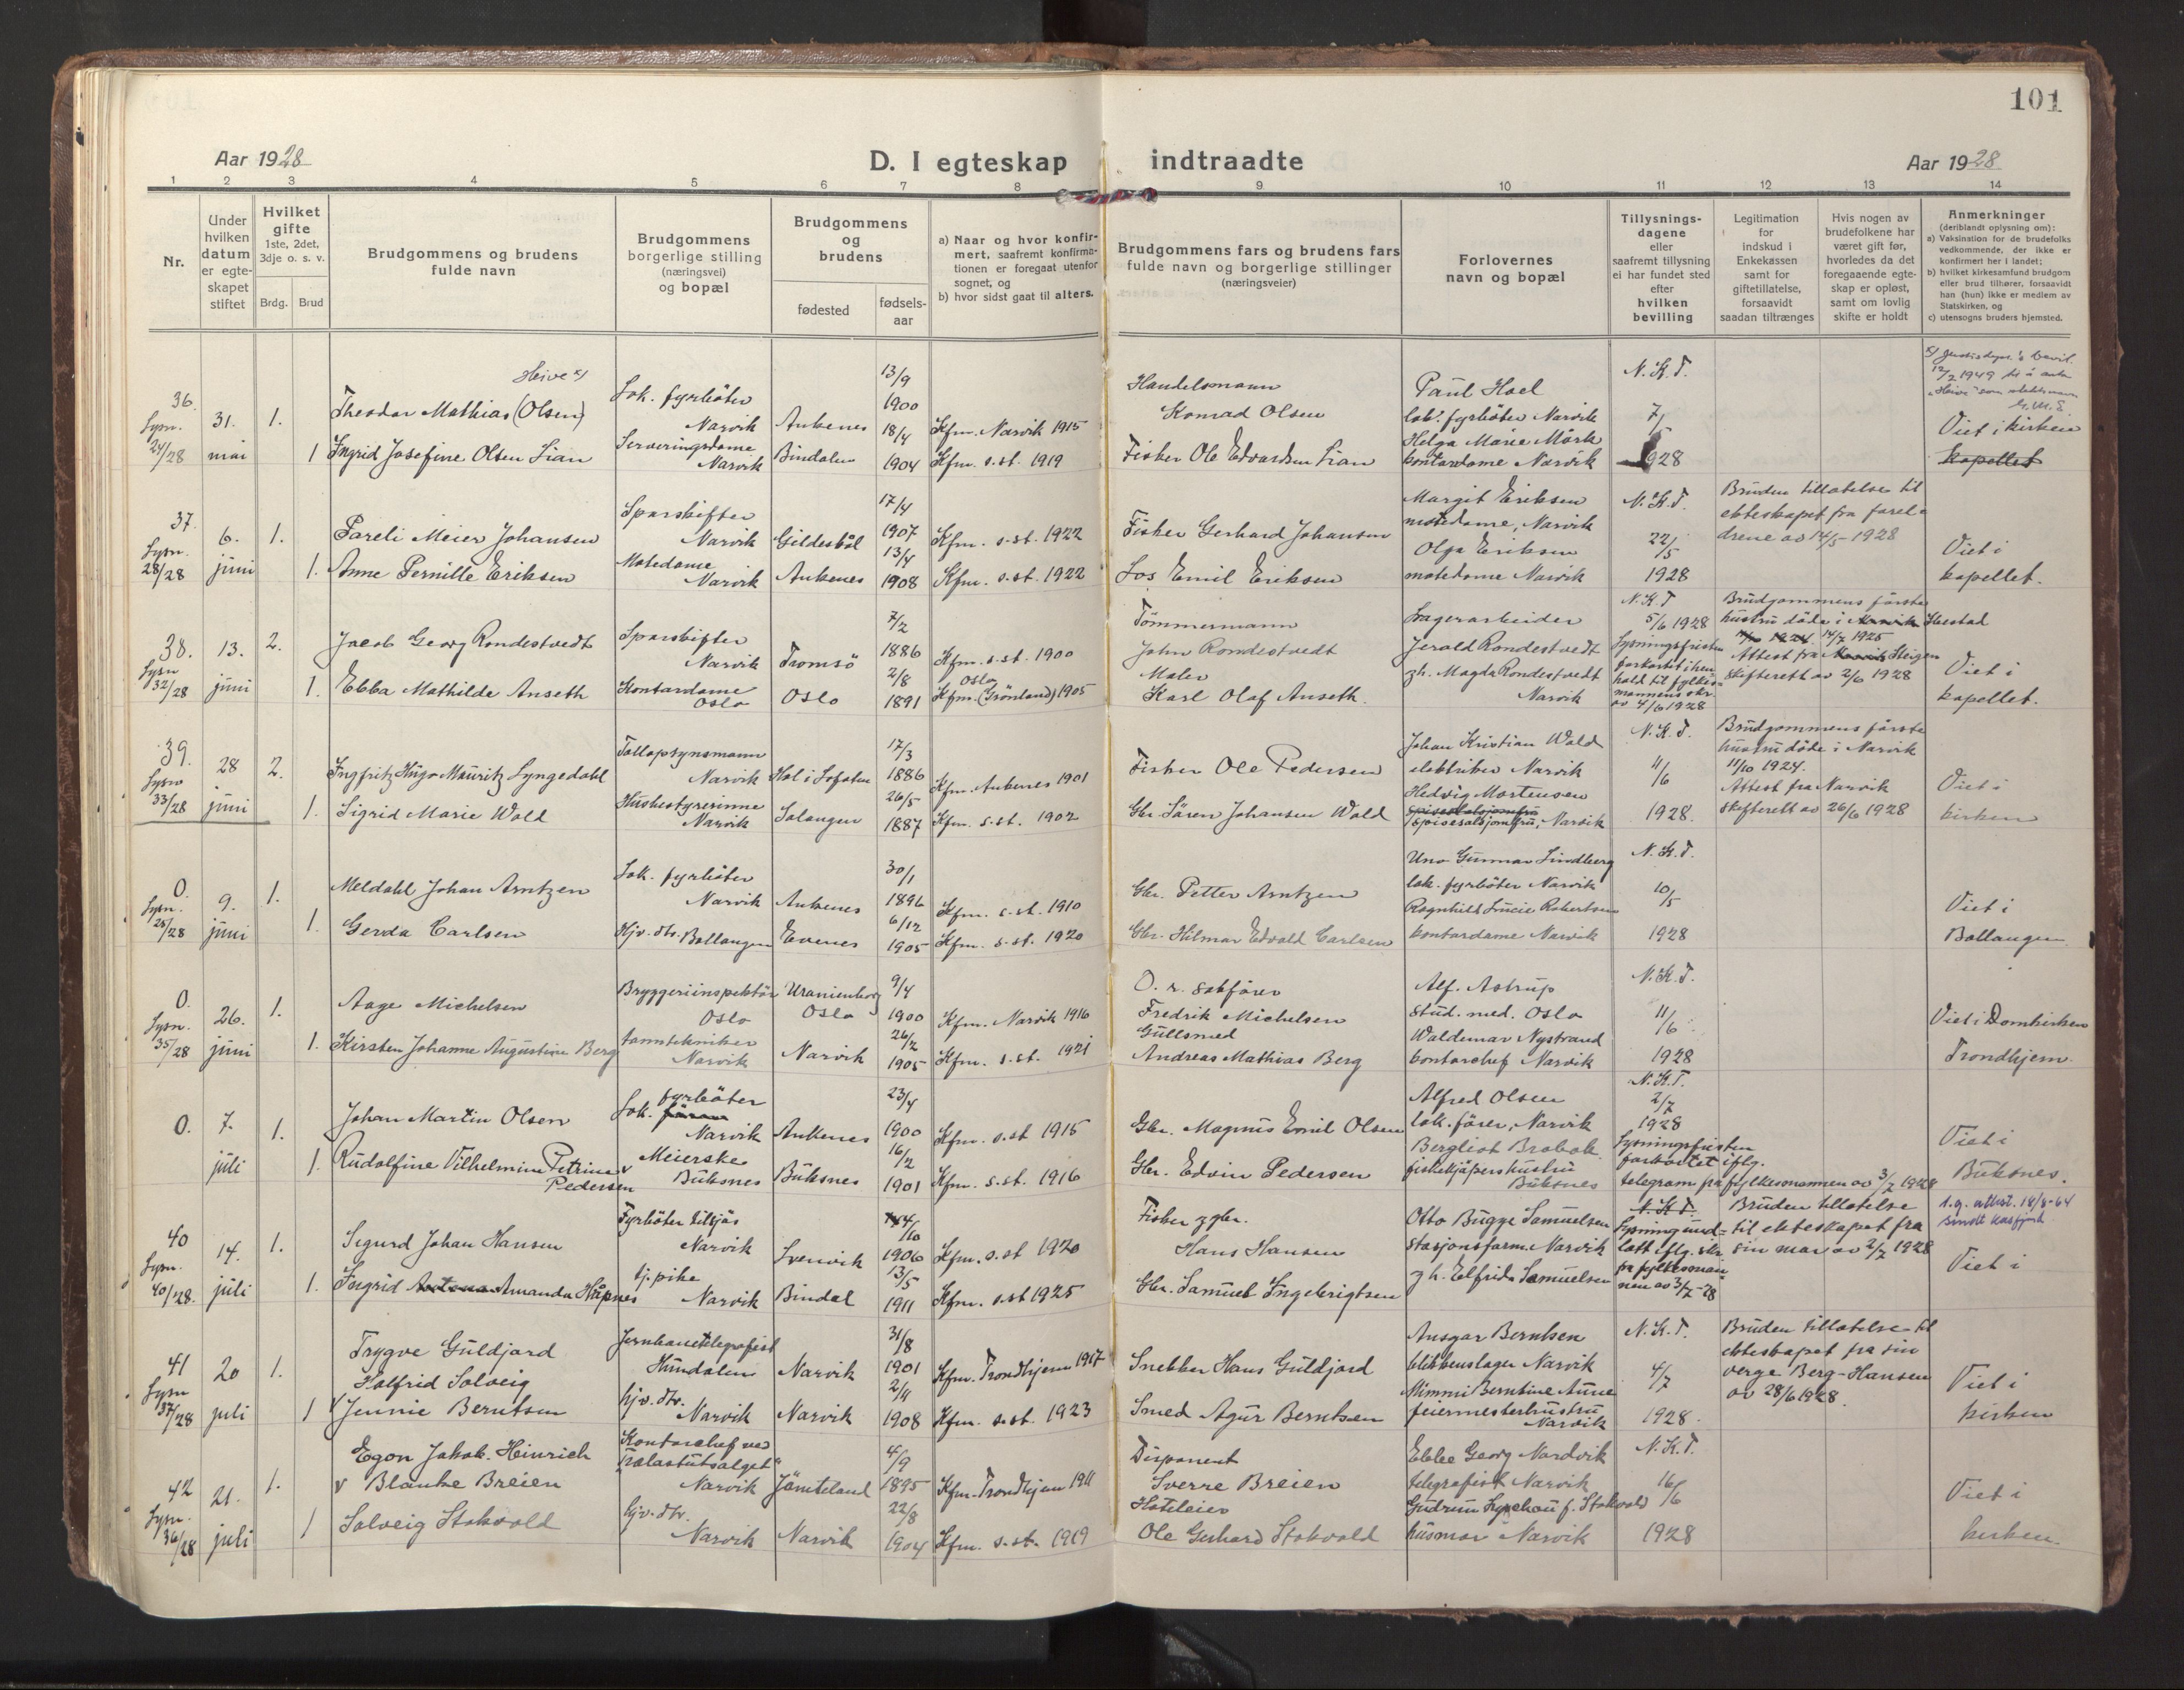 101
Aar 1928
D. I egteskap indtraadte
Aar 1928
1 2 3 4 5 6 7 8 9 10 11 12 13 14
Nr.
Under
hvilken
datum
er egte-
skapet
stiftet
Hvilket
gifte
1ste, 2det,
3dje o. s. v.
Brdg.
Brud
Brudgommens og brudens
fulde navn
Brudgommens
borgerlige stilling
(næringsvei)
og bopæl
Brudgommens
og
brudens
fødested
fødsels-
aar
a) Naar og hvor konfir-
mert, saafremt konfirma-
tionen er foregaat utenfor
sognet, og
b) hvor sidst gaat til alters.
Brudgommens fars og brudens fars
fulde navn og borgerlige stillinger
(næringsveier)
Forlovernes
navn og bopæl
Tillysnings-
dagene
eller
saafremt tillysning
ei har fundet sted
efter
hvilken
bevilling
Legitimation
for
indskud i
Enkekassen
samt for
giftetillatelse,
forsaavidt
saadan tiltrænges
Hvis nogen av
brudefolkene har
været gift før,
hvorledes da det
foregaaende egte-
skap er opløst,
samt om lovlig
skifte er holdt
Anmerkninger
(deriblandt oplysning om):
a) Vaksination for de brudefolks
vedkommende, der ikke er
konfirmert her i landet;
b) hvilket kirkesamfund brudgom
eller brud tilhører, forsaavidt
han (hun) ikke er medlem av
Statskirken, og
c) utensogns bruders hjemsted.
36.
Lysn.
24/28
31.
mai
1.
1
Heive x)
Theodor Mathias (Olsen)
Ingrid Josefine Olsen Lian
Lok. fyrbøter
Narvik
Serveringsdame
Narvik
Ankenes
Bindalen
13/9
1900
18/4
1904
Kfm. Narvik 1915
Kfm. s. st. 1919
Handelsmann
Konrad Olsen
Fisker Ole Edvardsen Lian
Paul Hoel
lok. fyrbøter Narvik
Helga Marie Mørk
kontordame Narvik
N. K. T.
7/
1928
12/2 1949
Viet i kirken
kapellet
37.
Lysn.
28/28
6.
juni
1.
1.
Pareli Meier Johansen
Anne Pernille Eriksen
Sporskifter
Narvik
Motedame
Narvik
Gildeskål
Ankenes
17/4
1907
13/4
1908
Kfm. s. st. 1922
Kfm. s. st. 1922
Fisker Gerhard Johansen
Los Emil Eriksen
Margit Eriksen
motedame, Narvik
Olga Eriksen
motedame Narvik
N. K. T.
22/5
1928
Bruden tillatelse til
ekteskapet fra forel-
drene av 14/5 - 1928
Viet i
kapellet.
38.
Lysn
32/28
13.
juni
2.
1.
Jacob Georg Rondestvedt
Ebba Mathilde Anseth
Sporskifter
Narvik
Kontordame
Oslo
Tromsø
Oslo
7/2
1886
2/8
1891
Kfm. s. st. 1900
Oslo
Kfm. (Grønland) 1905
Tømmermann
John Rondestvedt
Maler
Karl Olaf Anseth.
Lagerarbeider
Jerald Rondestvedt
gh. Magda Rondestvedt
Narvik
N. K. T
5/6 1928
Lysningsfristen
forkortet i hen
hold til fylkes-
mannens skr.
av 4/6 1928
Brudgommens første
hustru døde i Narvik
1924. 14/7 1925
Attest fra Narvik Steigen
skifterett av 2/6 1928
Viet i
kapellet.
39.
Lysn
33/28
28
juni
2.
1.
Ingfritz Hugo Mauritz Lyngedahl
Sigrid Marie Wold
Tollopsynsmann
Narvik
Husbestyrerinne
Narvik
Hol i Lofoten
Salangen
17/3
1886
26/5
1887
Kfm. Ankenes 1901
Kfm. s. st. 1902
Fisker Ole Pedersen
Gbr. Søren Johansen Wold
Johan Kristian Wold
elektriker Narvik
Hedvig Mortensen
spisesalsjomfru, Narvik
N. K. T.
11/6
1928.
Brudgommens første
hustru døde i Narvik
11/10 1924.
Attest fra Narvik
skifterett av 26/6 1928
Viet i
kirken
0.
Lysn.
25/28
9.
juni
1.
1.
Meldahl Johan Arntzen
Gerda Carlsen
Lok. fyrbøter
Narvik
Hjv. dtr. Ballangen
Ankenes
Evenes
30/1
1896
6/12
1905
Kfm. s. st. 1910
Kfm. s. st. 1920
Gbr. Petter Arntzen
Gbr. Hilmar Edvald Carlsen
Uno Gunnar Lindberg
lok. fyrbøter Narvik
Ragnhild Lucie Robertsen
kontordame Narvik
N. K. T.
10/5
1928
Viet i
Ballangen
0.
Lysn.
35/28
26.
juni
1.
1.
Aage Michelsen
Kirsten Johanne Augustine Berg
Bryggeriinspektør
Oslo
tanntekniker
Narvik
Uranienborg
Oslo
Narvik
9/4
1900
26/2
1905
Kfm. Narvik 1916
Kfm. s. st. 1921
O. r. sakfører
Fredrik Michelsen
Gullsmed
Andreas Mathias Berg
Alf. Astrup
stud. med. Oslo
Waldemar Nystrand
kontorchef Narvik
N. K. T.
11/6
1928
Viet i Domkirken
Trondhjem.
0.
7.
juli
1.
1.
Johan Martin Olsen
Rudolfine Vilhelmine Petrine
Pedersen
fyrbøter
Lok. fører
Narvik
Meierske
Buksnes
Ankenes
Buksnes
23/4
1900
16/2
1901
Kfm. s. st 1915
Kfm. s. st. 1916
Gbr. Magnus Emil Olsen
Gbr. Edvin Pedersen
Alfred Olsen
lok. fører, Narvik
Bergliot Brobak
fiskekjøpers hustru
Buksnes
N. K. T.
2/7
1928
Lysningsfristen
forkortet iflg.
telegram fra fylkesmannen av 3/7 1928
Viet i
Buksnes.
40
Lysn.
40/28.
14.
juli
1.
1.
Sigurd Johan Hansen
Ingrid Antona Amanda Håpnes
Fyrbøter tilsjøs
Narvik
tj. pike
Narvik
Svenvik
Bindal
14/10
1906
13/5
1911
Kfm. s. st 1920
Kfm. s. st 1925
Fisker og gbr.
Hans Hansen
Gbr. Samuel Ingebrigtsen
Otto Bugge Samuelsen
stasjonsform. Narvik
gh. Elfrida Samuelsen
N. K. T.
Lysning und-
latt iflg. skr
fra fylkesman-
nen av 3/7 - 28
Bruden tillatelse
til ekteskapet fra
sin mor av 2/7 1928
1.g. attest. 18/8-64
Viet i
41
Lysn
37/28
20
juli
1.
1
Trygve Guldjord
Halfrid Solveig
Jennie Berntsen
Jernbanetelegrafist
Hundalen
hjv. dtr.
Narvik
Narvik
Narvik
31/8
1901
2/11
1908
Kfm. Trondhjem 1917
Kfm. s. st. 1923
Snekker Hans Guldjord
Smed Agur Berntsen
Ansgar Berntsen
blikkenslager Narvik
Mimmi Berntine Aune
feiermesterhustru
Narvik
N. K. T.
4/7
1928.
Bruden tillatelse til
ekteskapet fra sin
verge Berg-Hansen
av 28/6 1928.
Viet i
kirken
42
Lysn.
36/28
21.
juli
1.
1
Egon Jakob Heinrich
v Blanke Breien
Solveig Stokvold
Kontorchef ved
"Kolastutsalget"
Narvik
hjv. dtr.
Narvik
Jämteland
Narvik
4/9
1895
22/8
1904
Kfm. Trondhjem 1911
Kfm. s. st. 1919
Disponent
Sverre Breien
Hoteleier
Ole Gerhard Stokvold
Ebbe Georg Nordvik
telegrafist Narvik
Gudrun Lyschou f. Stokvold
husmor Narvik
N. K. T.
16/6
1928
Viet i
kirken.